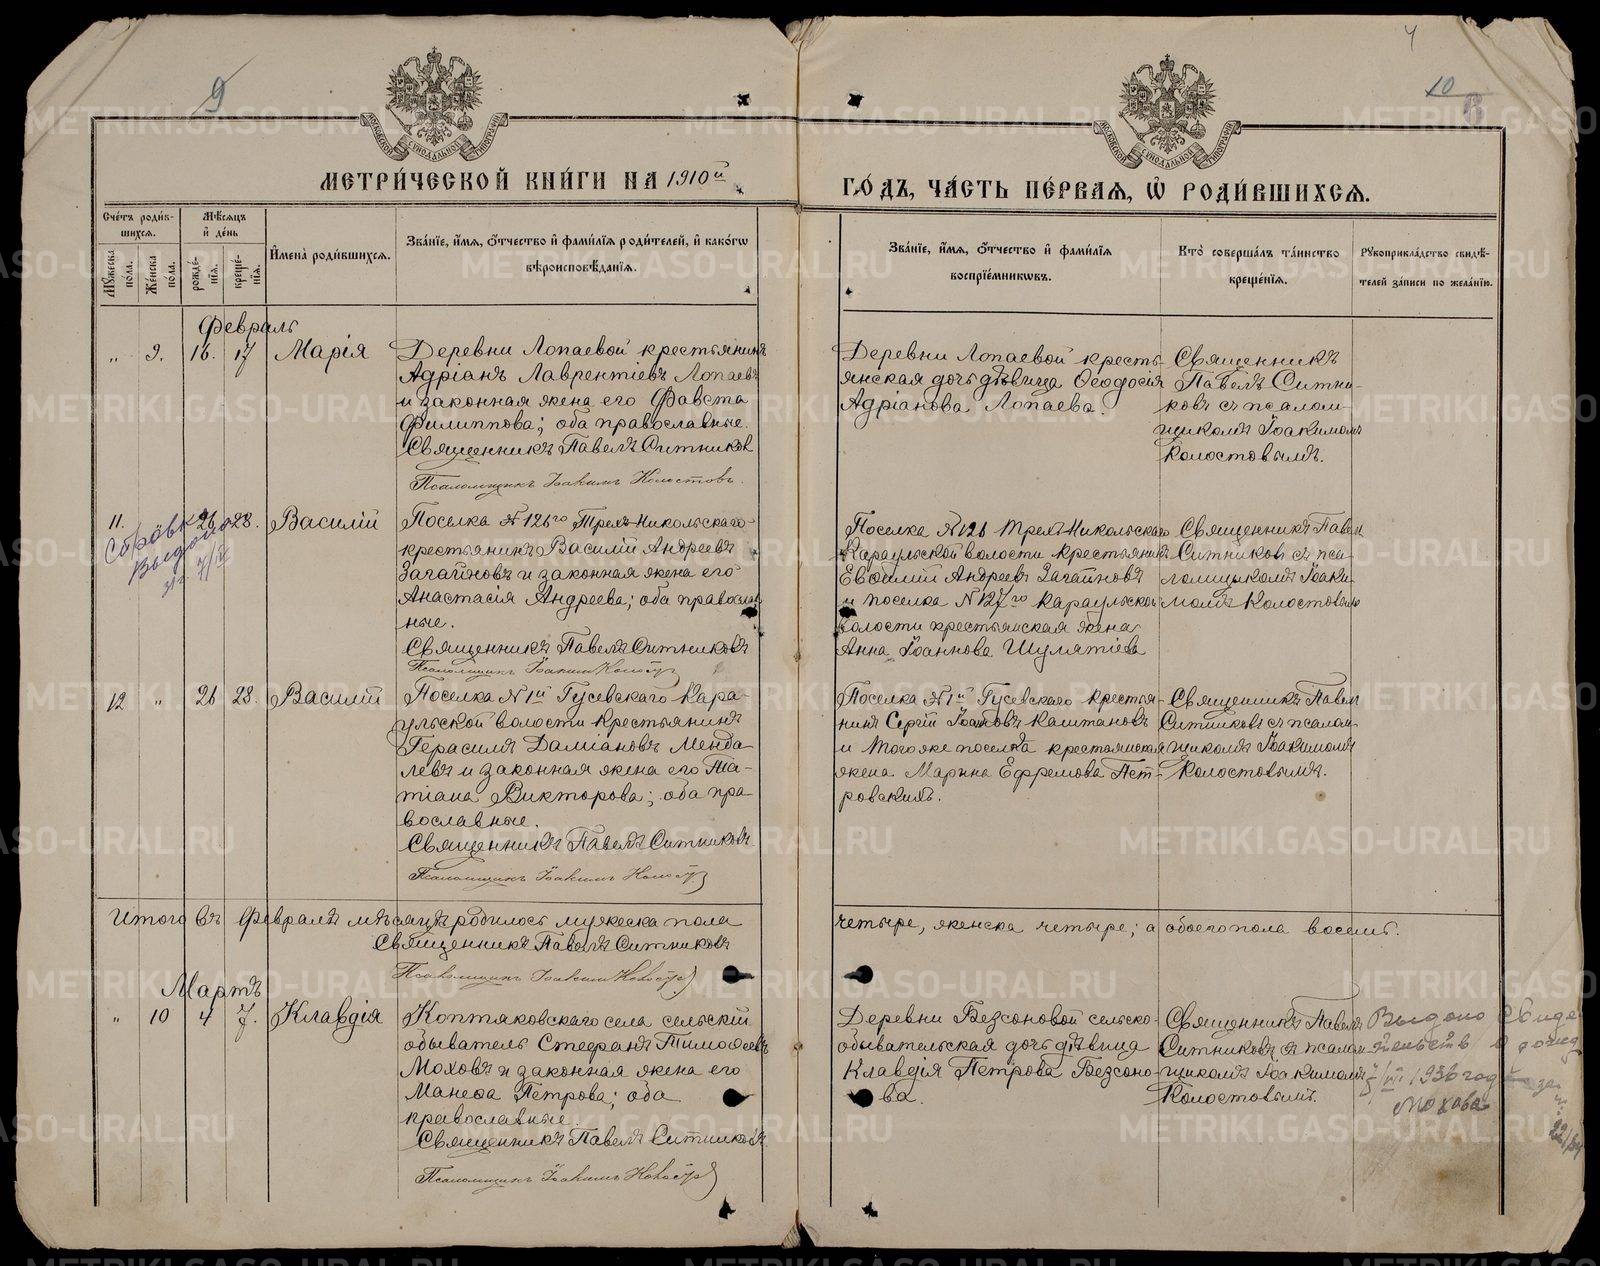 9
4
10
МЕТРИ́ЧЕСКОЙ КНИ́ГИ НА 1910й
ГО́ДЪ, ЧА́СТЬ ПЕ́РВАЯ, Ѽ РОДИ́ВШИХСЯ.
Сче́тъ роди́в-
шихся.
Мꙋ́жеска пола.
Же́нска по́ла.
Мѣ́сяцъ
и҆ де́нь
рожде́-
нїя.
креще-
нїя.
И҆мена̀ роди́вшихся.
Зва́нїе, и҆́мя, ѻ҆́тчество и҆ фами́лїя роди́телей, и҆ како́гѡ
вѣроисповѣ́данїя.
Зва́нїе, и҆́мя, ѻ҆́тчество и҆ фами́лїя
воспрїе́мникѡвъ.
Кто̀ соверша́лъ та́инство
креще́нїя.
Рꙋкоприкла́дство свидѣ́-
телей за́писи по жела́нїю.
Февраль
„ 9. 16. 17 Марія
Деревни Лопаевой крестьянинъ
Адріанъ Лаврентіевъ Лопаевъ
и законная жена его Фавста
Филиппова; оба православные.
Священникъ Павелъ Ситников
Псаломщикъ Іоакимъ Колостовъ.
Деревни Лопаевой кресть-
янская дочь дѣвица Ѳеодосія
Адріанова Лопаева.
Священникъ
Павелъ Ситни-
ковъ съ псалом-
щикомъ Іоакимомъ
Колостовымъ.
11. 26 28. Василій
Поселка № 126го Трехъ-Никольскаго
крестьянинъ Василій Андреевъ
Загайновъ и законная жена его
Анастасія Андреева; оба православ
ные.
Священникъ Павелъ Ситниковъ
Псаломщикъ Іоакимъ Колост
Поселка №126 Трехъ-Никольскаго
Караульской волости крестьянинъ
Евѳимій Андреевъ Загайновъ
и поселка N 127го Караульской
волости крестьянская жена
Анна Іоаннова Шулятіева
Священникъ Павелъ
Ситниковъ съ пса-
ломщикомъ Іоаки-
момъ Колостовымъ
выдана
12 „ 26 28. Василій
Поселка N 1й Гусевскаго Кара-
ульской волости крестьянинъ
Герасимъ Даміановъ Менда-
левъ и законная жена его Та-
тіана Викторова; оба пра
вославные.
Священникъ Павелъ Ситниковъ
Псаломщикъ Іоакимъ Колост
Поселка № 1й Гусевскаго крестья-
нинъ Сергій Іоакововъ Каштановъ
и того же поселка крестьянская
жена Марина Ефремова Пет-
ровскихъ.
Священникъ Павелъ
Ситниковъ съ псалом-
щикомъ Іоакимомъ
Колостовымъ.
Итого въ Февралѣ мѣсяцѣ родилось мужеска пола
четыре, женска четыре; а обоего пола восемь.
Священникъ Павелъ Ситниковъ
Псаломщикъ Іоакимъ Колост
Мартъ
„ 10 4 7. Клавдія
Коптяковскаго села сельскій
обыватель Стефанъ Тимоѳеевъ
Моховъ и законная жена его
Манеѳа Петрова; оба
православные.
Священникъ Павелъ Ситниковъ
Псаломщикъ Іоакимъ Колост
Деревни Безсоновой сельско-
обывательская дочь дѣвица
Клавдія Петрова Безсоно-
ва.
Священникъ Павелъ
Ситниковъ съ псалом-
щикомъ Іоакимомъ
Колостовымъ.
Выдано Свиде
тельств о рожд
1936 год за
Мохова
METRIKI.GASO-URAL.RU